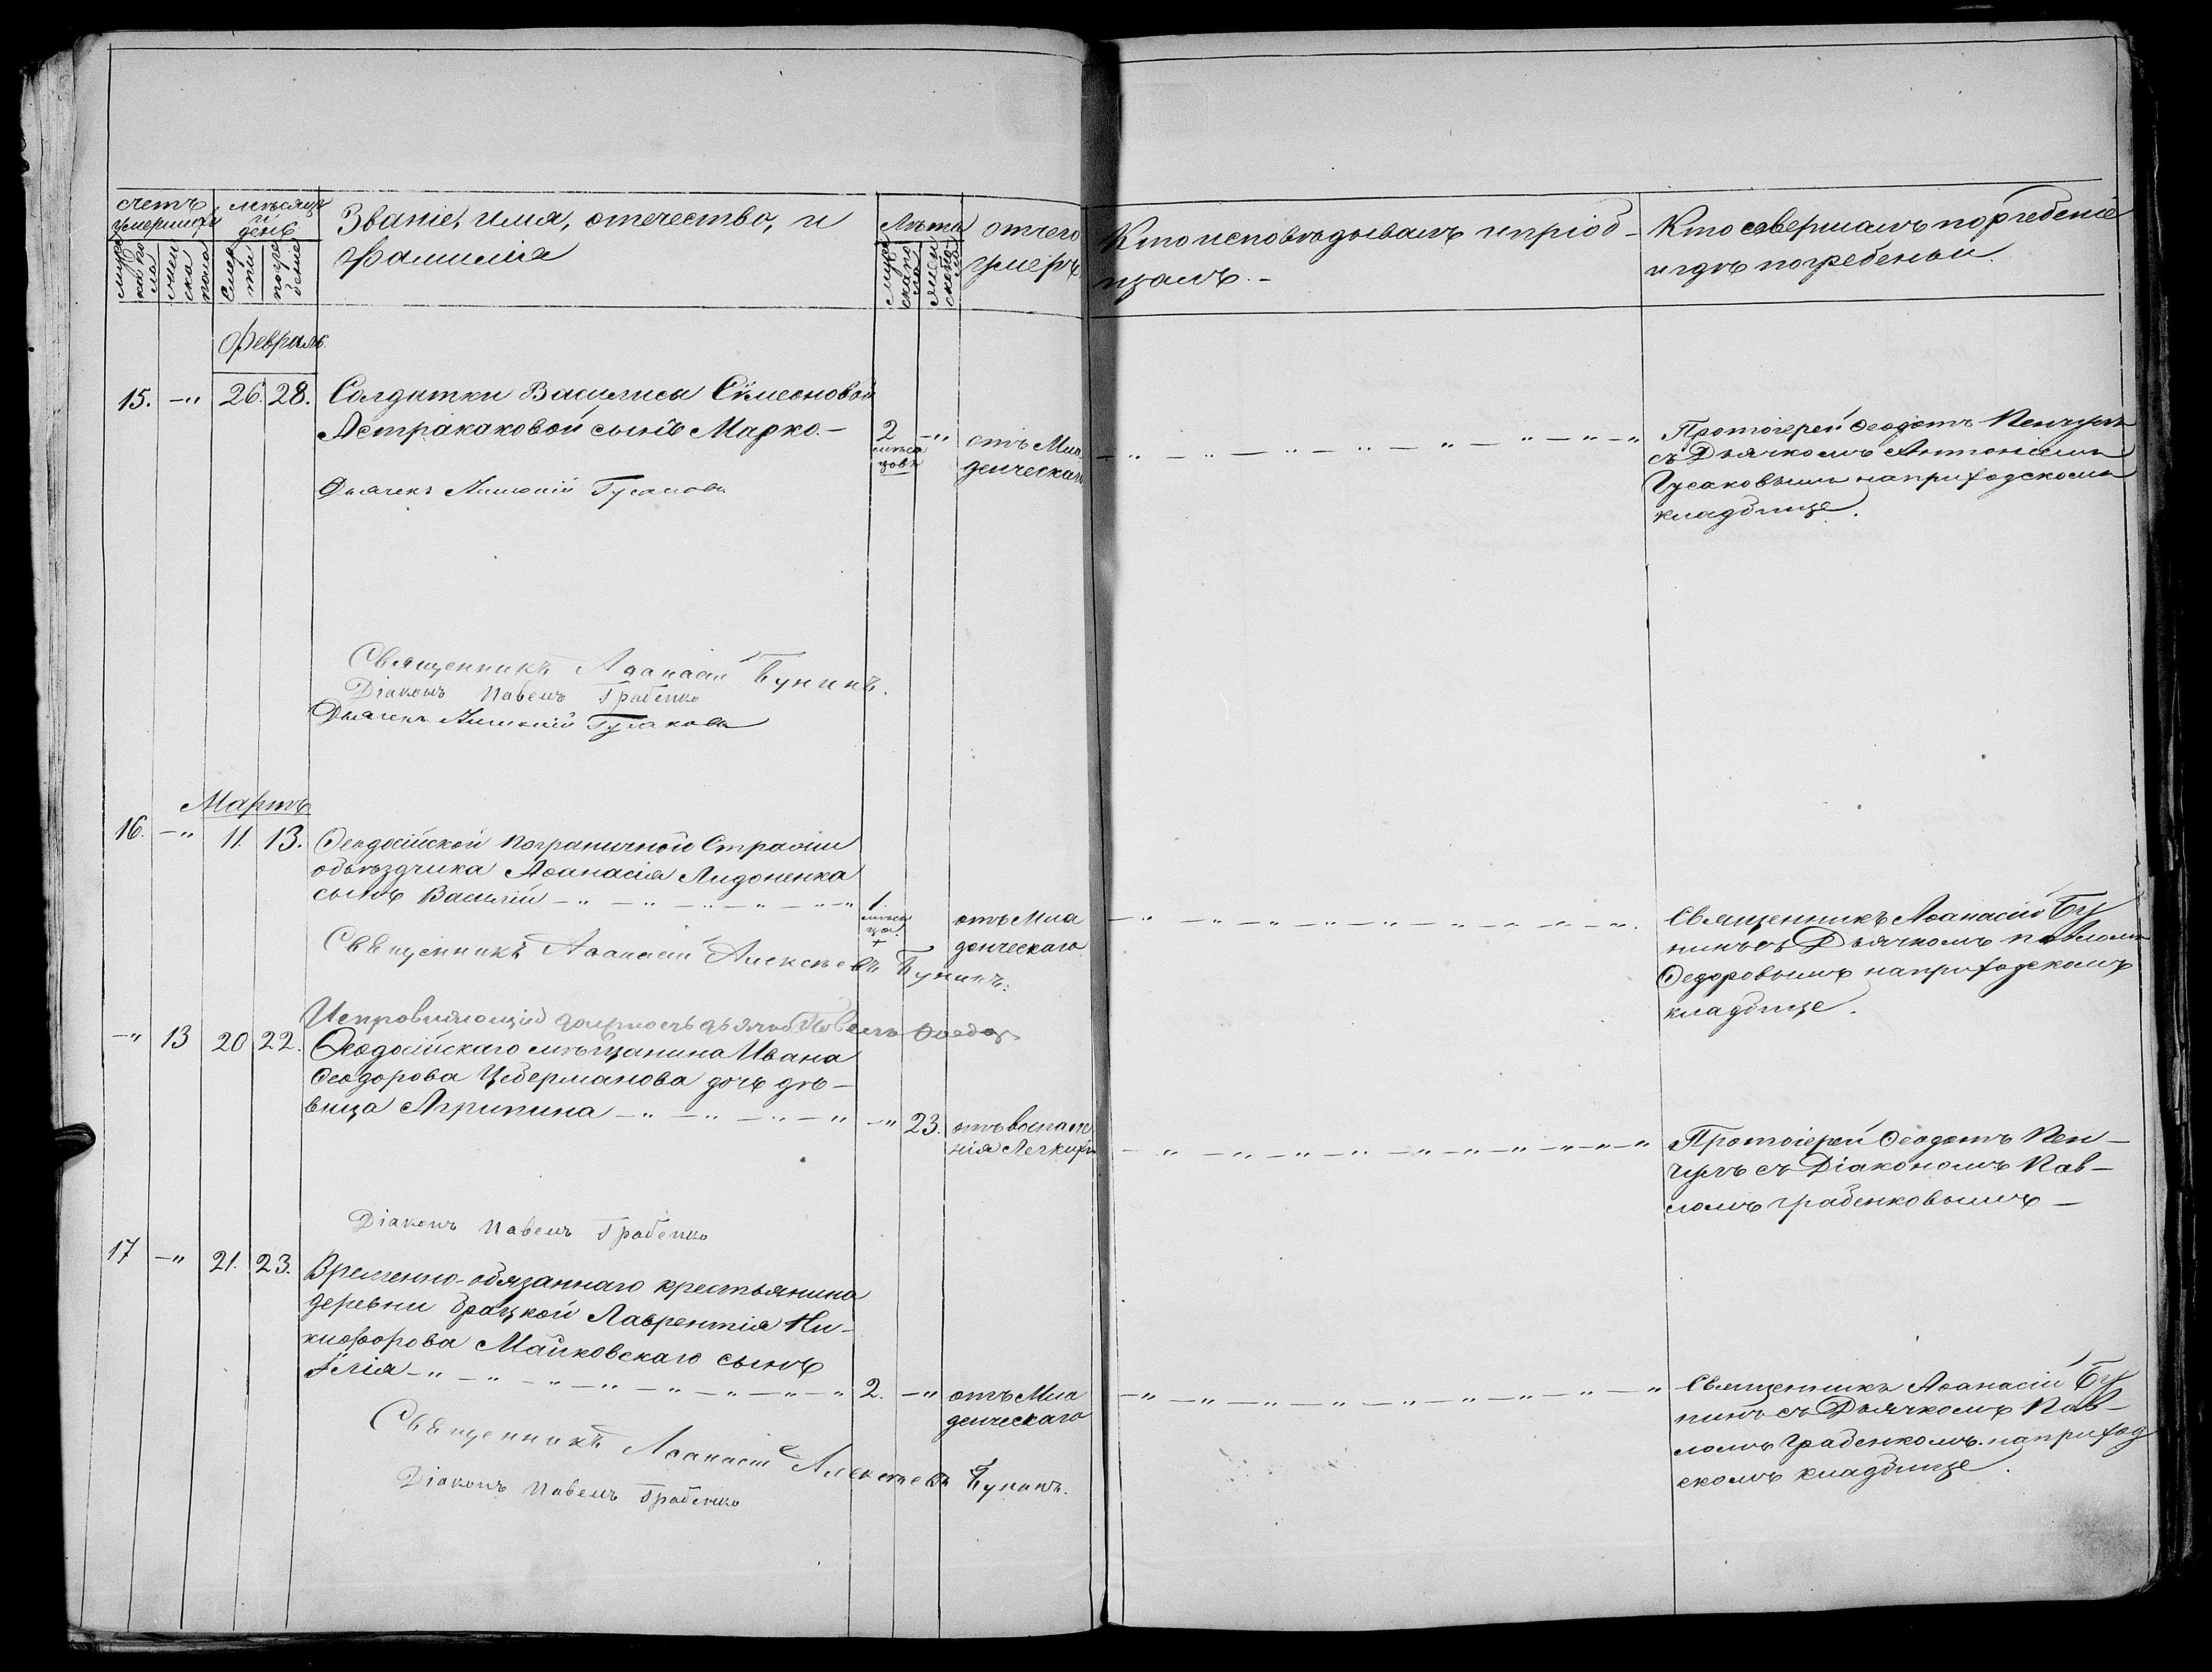 счетъ умершихъ
мѣсяцъ и день
Званіе, имя, отечество, и
фамилія
Лѣта
отчего
умеръ
мужеска пола
женска пола
смерти
погребенія
мужеска пола
женска пола
Кто исповѣдывалъ и пріоб-
щалъ.-
Кто совершалъ погребеніе
и гдѣ погребены.
Февраль.
15. -" 26. 28. Солдатки Василисы Сѵмеоновой
сынъ Марко.- 2 мѣсяцовъ -" отъ Мла-
денческаго
Дьячекъ Антоній Гусаковъ
Протоіерей Ѳеодотъ
съ Дьячкомъ Антоніемъ
Гусаковымъ на приходскомъ
кладбище.
Священникъ Аѳанасій Бунинъ.
Діаконъ Павелъ Грабенко
Дьячекъ Антоній Гусаковъ
Мартъ
16. -" 11. 13. Ѳеодосійской пограничной Стражи
объѣздчика Аѳанасія Лидоненка
сынъ Василій -"-"-"-"-" 1. мѣсяца + отъ Мла
денческаго
Священникъ Аѳанасій Алексѣевъ Бунинъ.
Священникъ Аѳанасій Бу
нинъ съ Дьячкомъ Павломъ
Ѳедоровымъ на приходскомъ
кладбище.
Исправляющій должность дьячка Павелъ
-" 13 20 22. Ѳеодосійскаго мѣщанина Ивана
Ѳеодорова Цеберманова дочь дѣ-
вица Агрипина -"-"-"-" -" 23. отъ воспале
нія Легкихъ
Протоіерей Ѳеодотъ
съ Діакономъ Пав-
ломъ Грабенковымъ -
Діаконъ Павелъ Грабенко
17 -" 21. 23. Временно-обязаннаго крестьянина
деревни Брацкой Лаврентія Ни-
кифорова Майковскаго сынъ
Илія -"-"-"-"-"-" 2. -" отъ Мла
денческаго
Священникъ Аѳанасій Алексѣевъ Бунинъ.
Діаконъ Павелъ Грабенко
Священникъ Аѳанасій Бу
нинъ съ Дьячкомъ Пав-
ломъ Грабенкомъ на приход
скомъ кладбище.